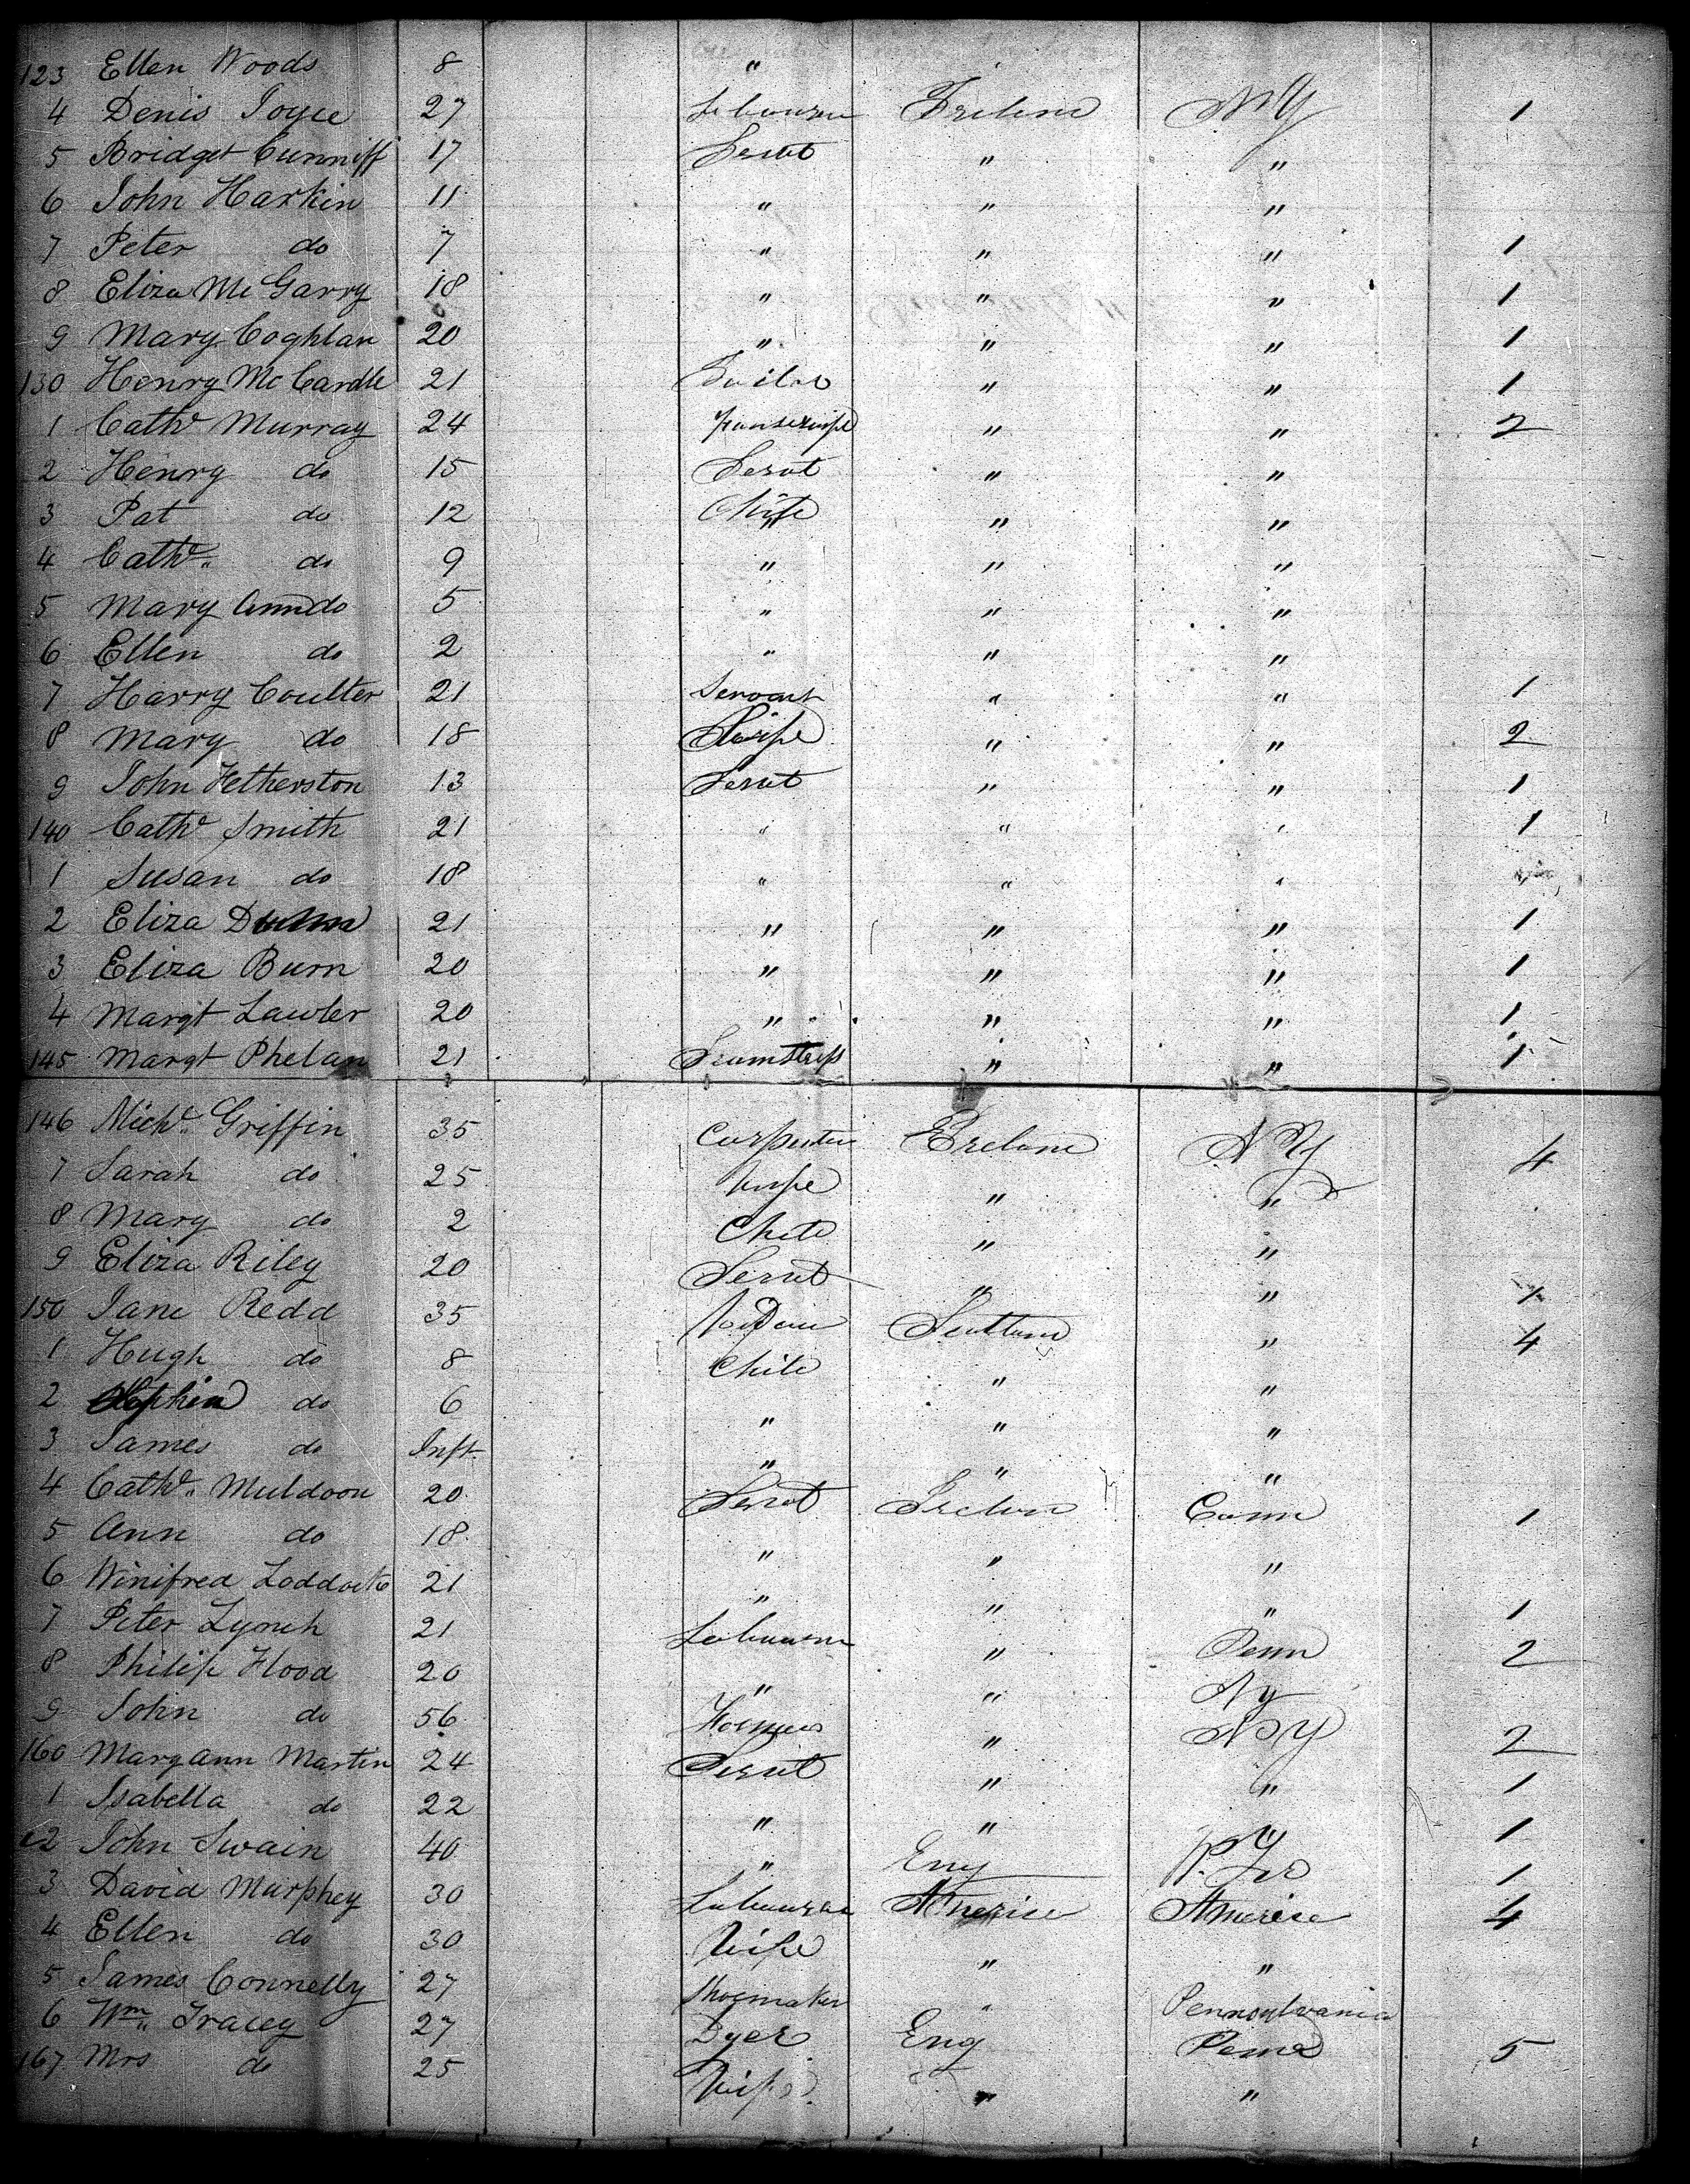 123 Ellen Woods 8 "
4 Denis Joyce 27 Labourer Ireland NY 1
5 Bridget Cunniff 17 Servt " "
6 John Harkin 11 " " "
7 Peter do 7 " " " 1
8 Eliza McGarry 18 " " " 1
9 Mary Coghlan 20 " " " 1
130 Henry McCardle 21 Tailor " " 1
1 Cathe Murray 24 " " 2
2 Henry do 15 Servt " "
3 Pat do 12 Child " "
4 Cathe do 9 " " "
5 Mary Ann do 5 " " "
6 Ellen do 2 " " "
7 Harry Coulter 21 Servant " " 1
8 Mary do 18 Wife " " 2
9 John Fetherston 13 Servt " " 1
140 Cathe Smith 21 " " " 1
1 Susan do 18 " " "
2 Eliza 21 " " " 1
3 Eliza Burn 20 " " " 1
4 Margt Lawler 20 " " " 1
145 Margt Phelan 21 " " 1
146 Michl Griffin 35 Carpenter Ireland NY 4
7 Sarah do 25 Wife " "
8 Mary do 2 Child " "
9 Eliza Riley 20 Servt " " 1
150 Jane Redd 35 Scotland " 4
1 Hugh do 8 Child " "
2 do 6 " " "
3 James do Inft " " "
4 Cathe Muldoon 20 Servt Ireland Conn 1
5 Ann do 18 " " "
6 Winifred 21 " " " 1
7 Peter Lynch 21 Labourer " Penn 2
8 Philip Flood 20 " " NY
9 John do 56 " NY 2
160 Mary Ann Martin 24 Servt " " 1
1 Isabella do 22 " " 1
2 John Swain 40 " Eng 1
3 David Murphey 30 Labourer America America 4
4 Ellen do 30 Wife " "
5 James Connelly 27 Shoemaker " Pennsylvania
6 Wm Tracey 27 Dyer Eng Penna 5
167 Mrs do 25 Wife " "